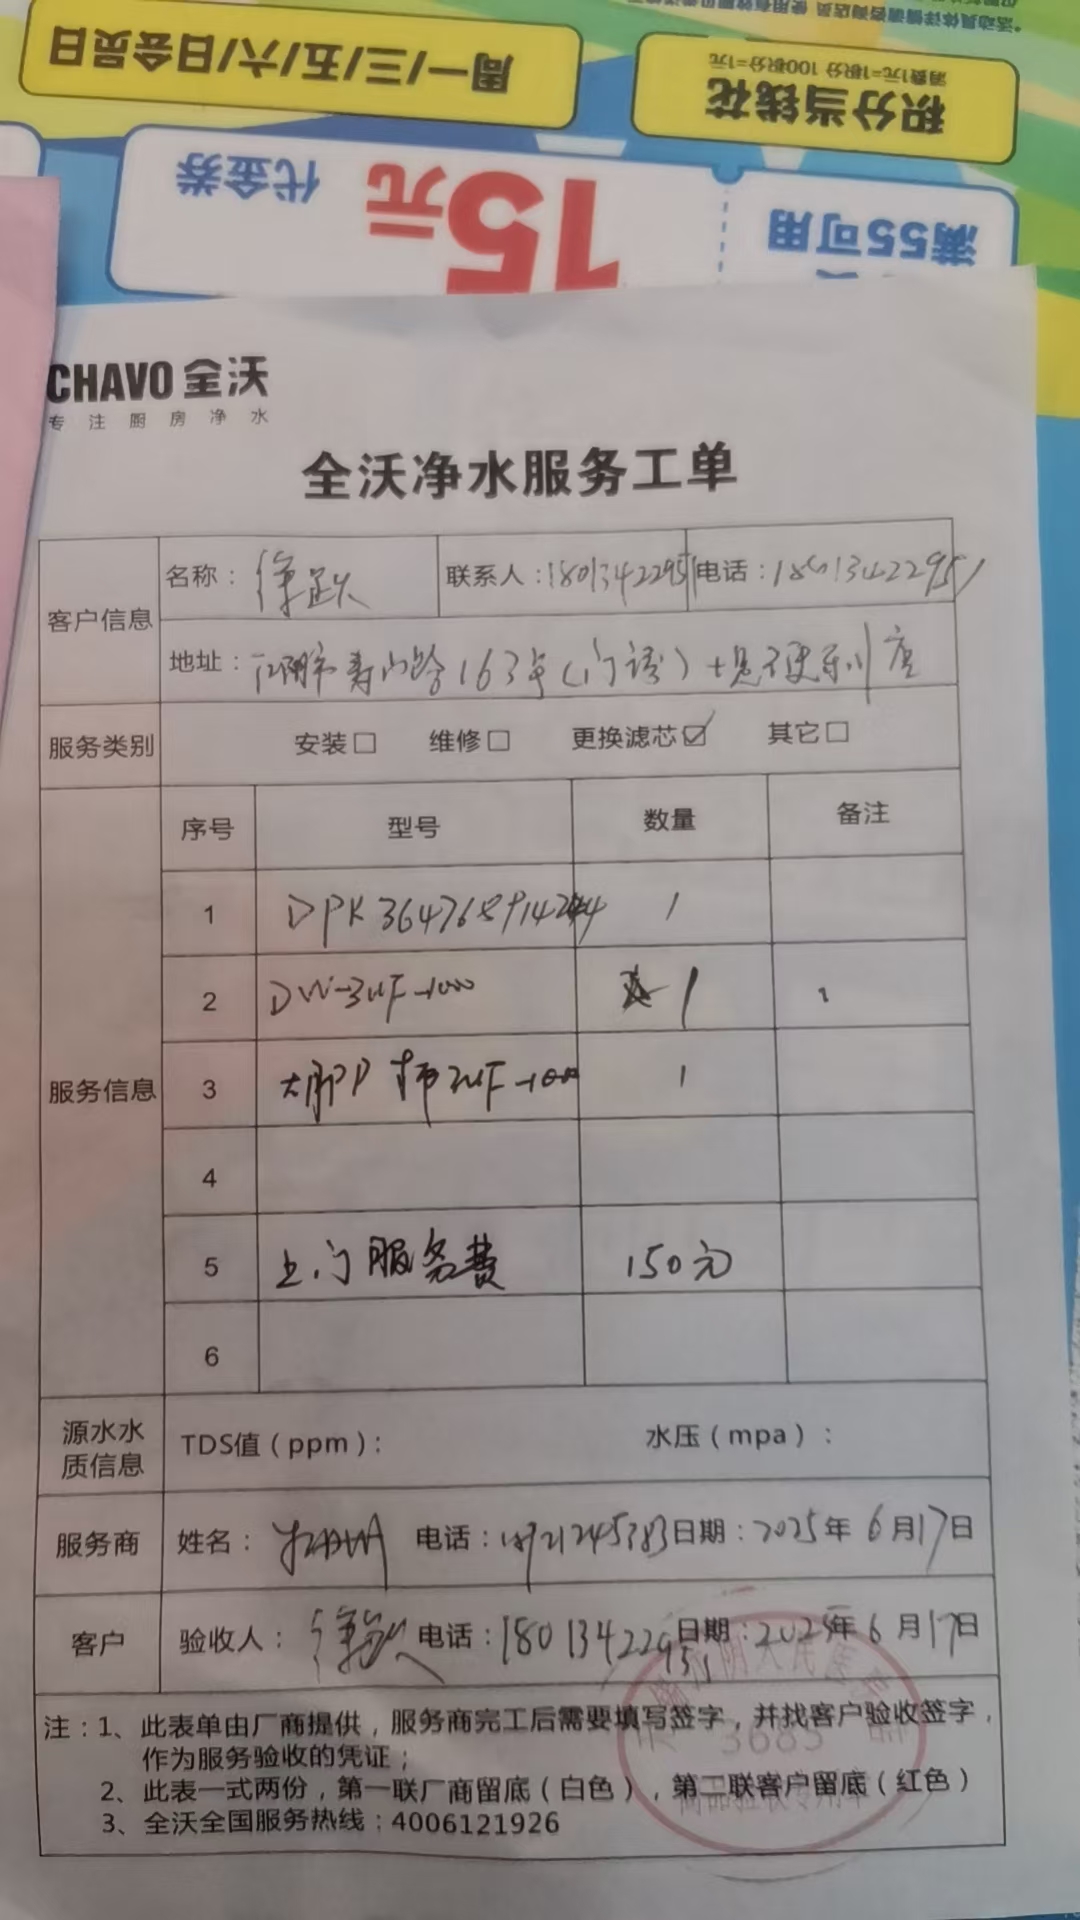 *活动具体详情请咨询店员
周一/三/五/六/日会员日
积分当钱花
消费1元=1积分 100积分=1元
15元
代金券
满55可用
CHAVO 全沃
专注厨房净水
全沃净水服务工单
客户信息
名称：徐跃
联系人：18013422951
电话：18013422951
地址：江阴市寿山路163号(门诊)
服务类别
安装□ 维修□ 更换滤芯☑ 其它□
服务信息
序号 型号 数量 备注
1 1
2 DW-3UF-1000 1
3 1
4
5 上门服务费 150元
6
源水水质信息
TDS值（ppm）： 水压（mpa）：
服务商
姓名： 电话： 日期：2025年6月17日
客户
验收人：徐跃 电话：18013422951 日期：2025年6月17日
注：1、此表单由厂商提供，服务商完工后需要填写签字，并找客户验收签字，
作为服务验收的凭证；
2、此表一式两份，第一联厂商留底（白色），第二联客户留底（红色）
3、全沃全国服务热线：4006121926
3685